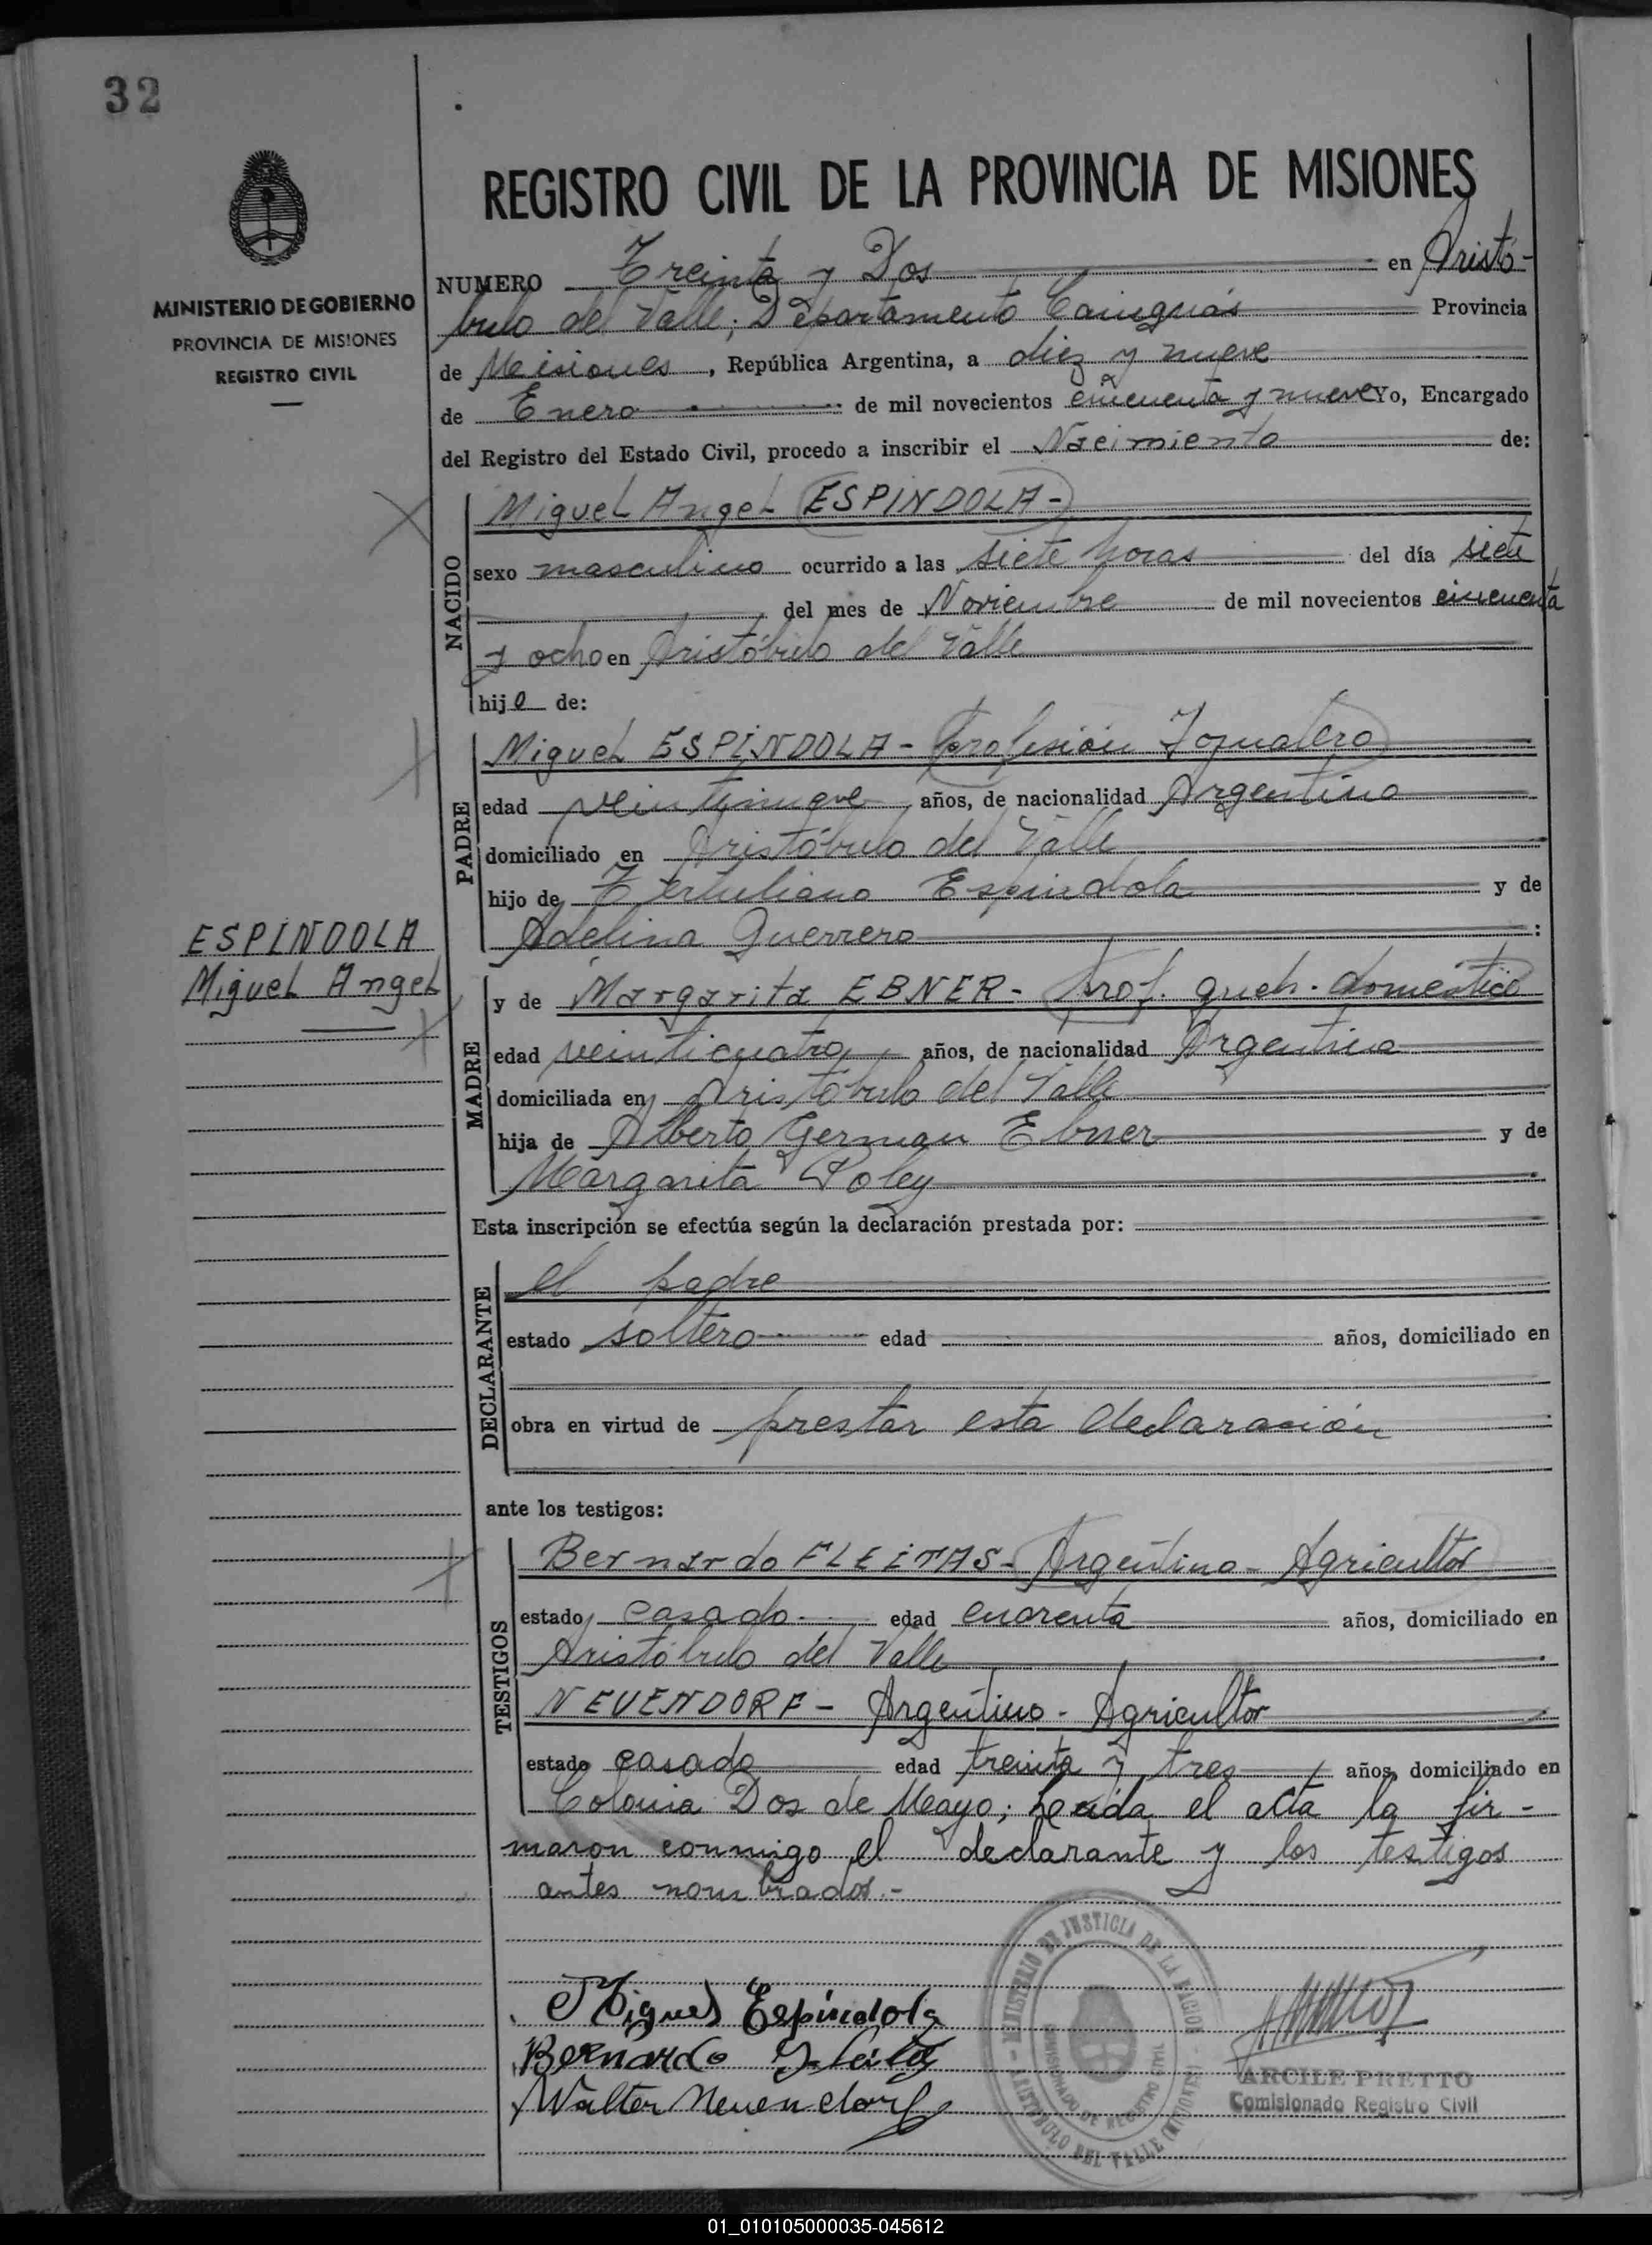 32
MINISTERIO DE GOBIERNO
PROVINCIA DE MISIONES
REGISTRO CIVIL
REGISTRO CIVIL DE LA PROVINCIA DE MISIONES
NUMERO Treinta y Dos en Aristó-
bulo del Valle; Departamento Cainguás Provincia
de Misiones, República Argentina, a diez y nueve
de Enero de mil novecientos cincuenta y nueve Yo, Encargado
del Registro del Estado Civil, procedo a inscribir el Nacimiento de:
NACIDO
Miguel Angel ESPINDOLA-
sexo masculino ocurrido a las siete horas del día siete
del mes de Noviembre de mil novecientos cincuenta
y ocho en Aristóbulo del Valle
hijo de:
PADRE
Miguel ESPINDOLA - profesión Jornalero
edad veintinueve años, de nacionalidad Argentino
domiciliado en Aristóbulo del Valle
hijo de Tertuliano Espindola y de
Adelina Guerrero :
ESPINDOLA
Miguel Angel
MADRE
y de Margarita EBNER- Prof. queh. doméstico
edad veinticuatro años, de nacionalidad Argentina
domiciliada en Aristóbulo del Valle
hija de Alberto German Ebner y de
Margarita Poley
Esta inscripción se efectúa según la declaración prestada por:
DECLARANTE
el padre
estado soltero edad años, domiciliado en
obra en virtud de prestar esta declaración
ante los testigos:
TESTIGOS
Bernardo FLEITAS- Argentino - Agricultor
estado casado edad cuarenta años, domiciliado en
Aristóbulo del Valle
NEUENDORF - Argentino - Agricultor
estado casado edad treinta y tres años, domiciliado en
Colonia Dos de Mayo; Leida el acta la fir-
maron conmigo el declarante y los testigos
antes nombrados.-
Miguel Espíndola
Bernardo Fleitas
Walter Neuendorf
MINISTERIO DE JUSTICIA DE LA NACION
COMISIONADO DE REGISTRO CIVIL
ARISTOBULO DEL VALLE (MISIONES)
ARCILE PRETTO
Comisionado Registro Civil
01_010105000035-045612